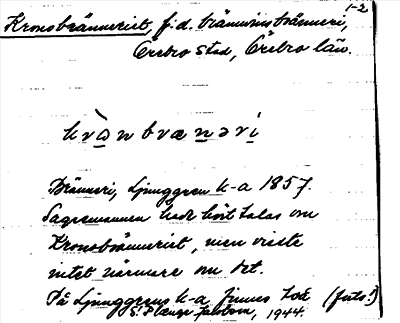 1-2
Kronobränneriet, f.d. brännvinsbränneri,
Örebro stad, Örebro län.
krò̱nbræṉəri̱
Bränneri, Ljunggren k-a 1857.
Sagesmannen hade hört talas om
Kronobränneriet, men visste
intet närmare om det.
På Ljunggrens k-a finnes (Juts.!)
1944.